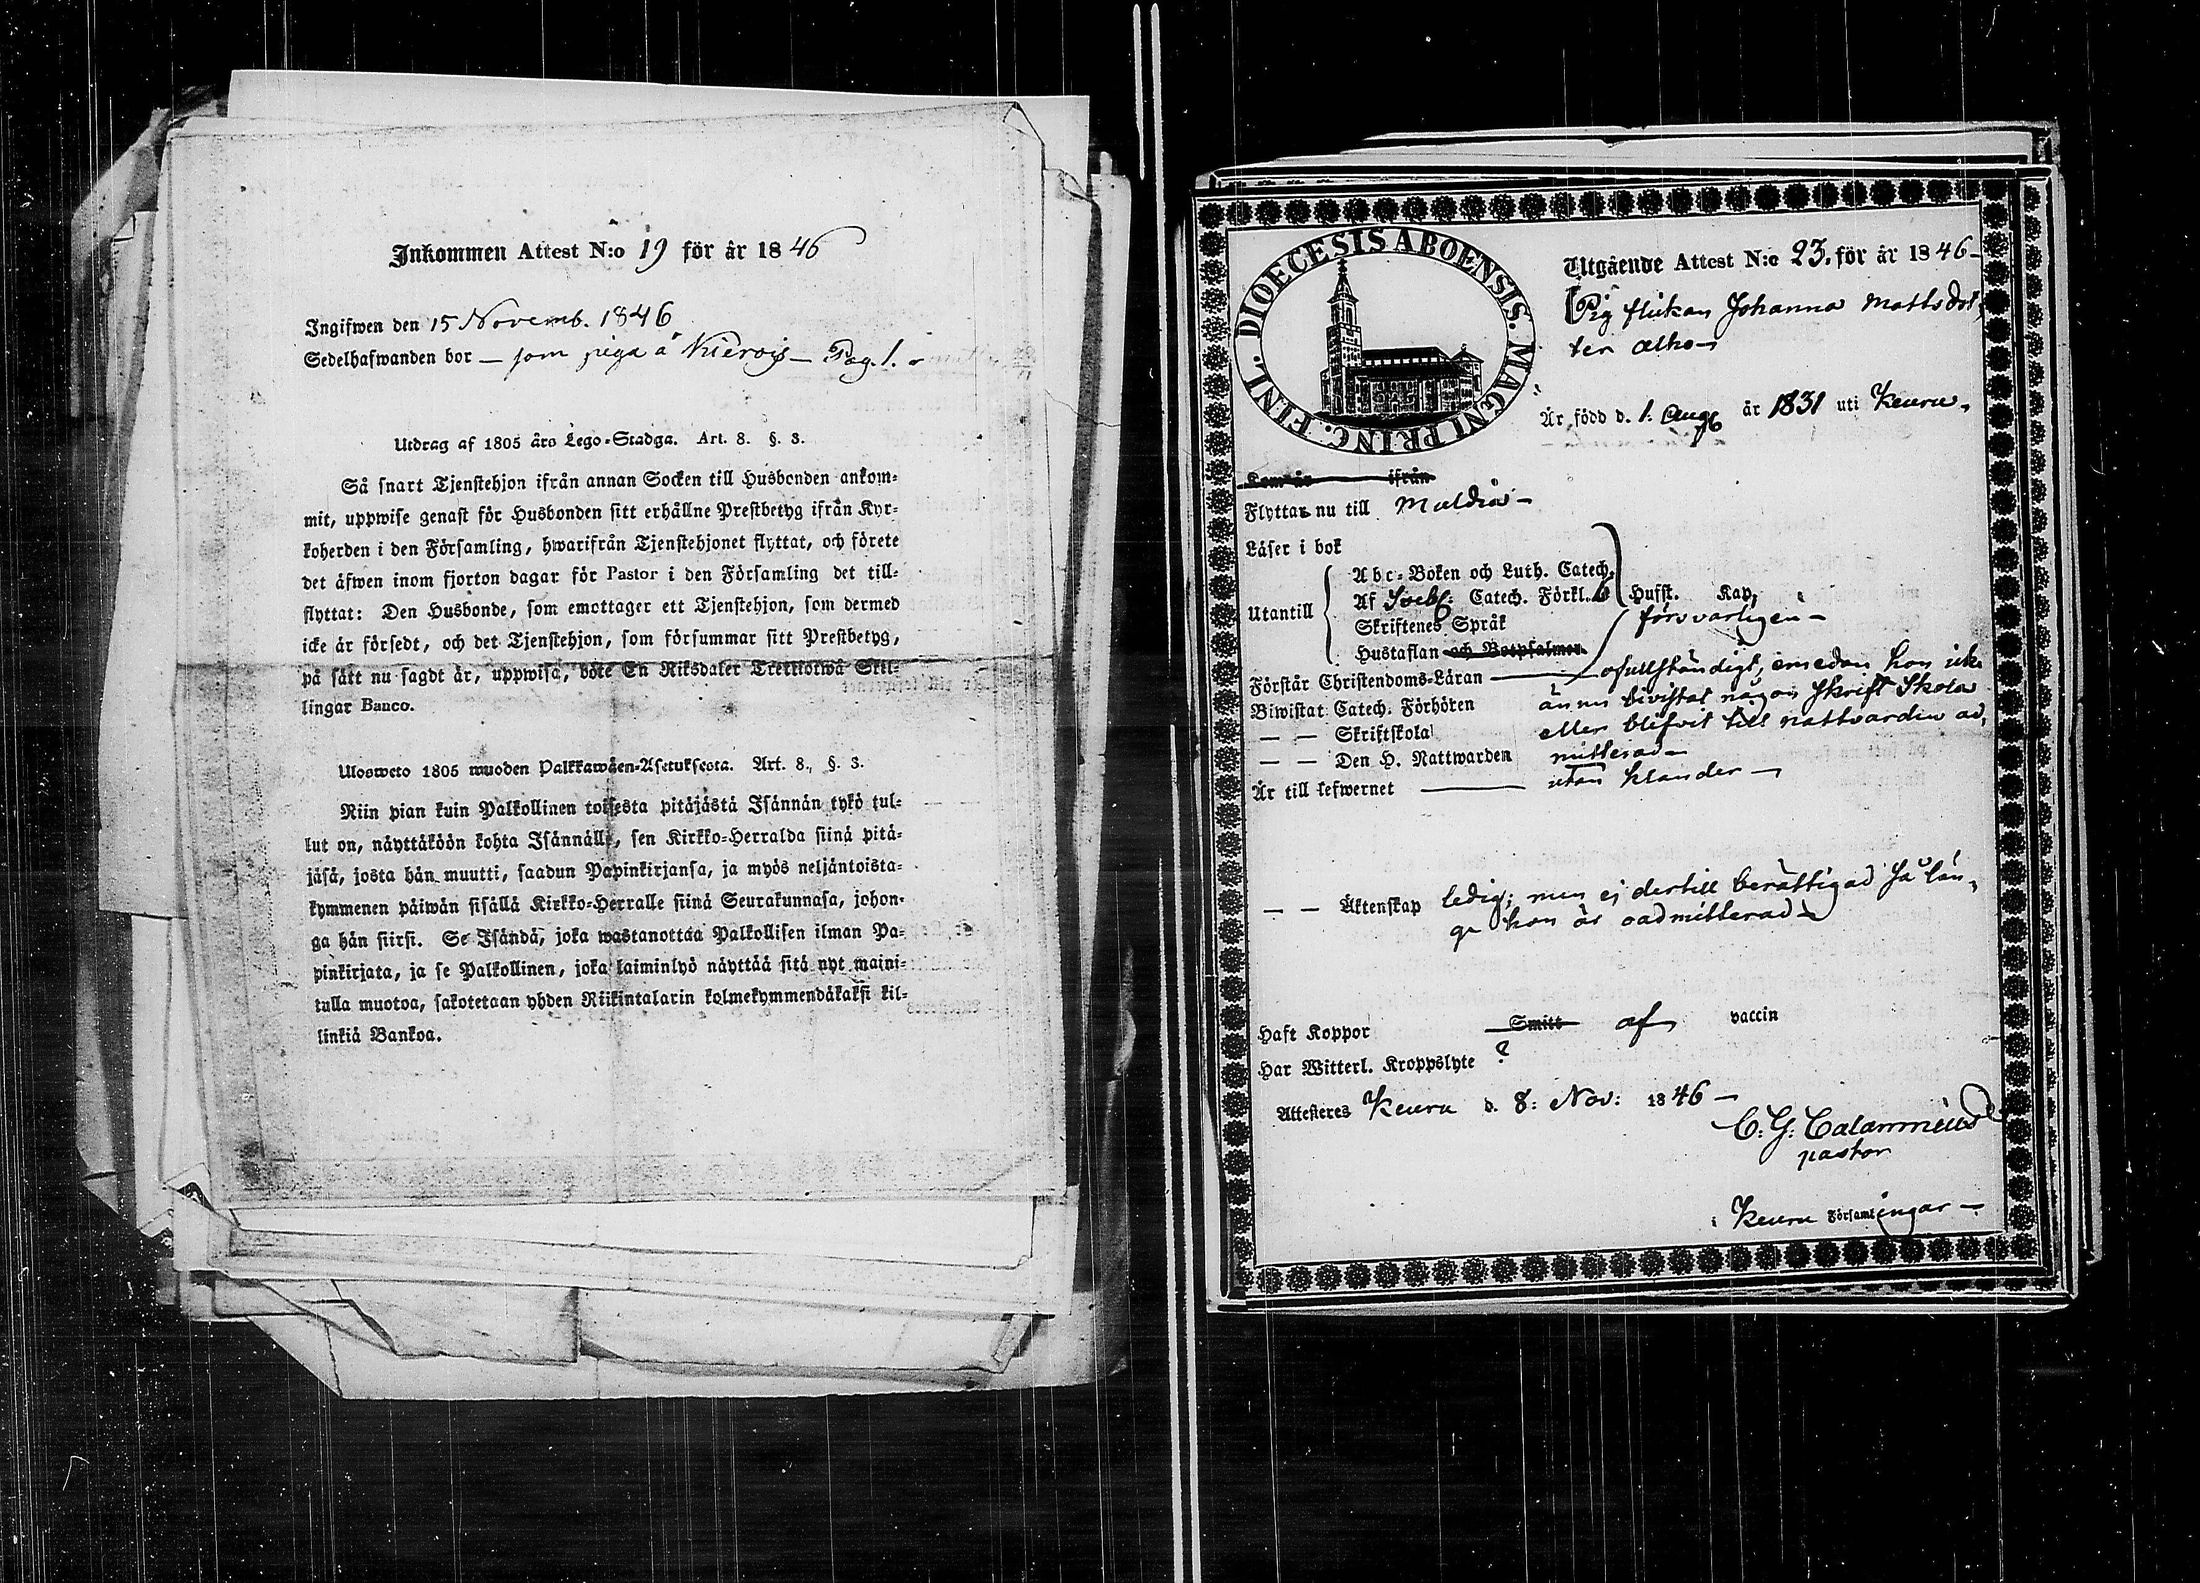 Inkommen Attest N:o 19 för år 1846
Ingifwen den 15 Novemb. 1846
Sedelhafwanden bor — som piga å Nierois — Pag. 1.
Utdrag af 1805 års Lego-Stadga. Art. 8. §. 3.
Så snart Tjenstehjon ifrån annan Socken till Husbonden ankom-
mit, uppwise genast för Husbonden sitt erhållne Prestbetyg ifrån Kyr-
koherden i den Församling, hwarifrån Tjenstehjonet flyttat, och förete
det äfwen inom fjorton dagar för Pastor i den Församling det till-
flyttat: Den Husbonde, som emottager ett Tjenstehjon, som dermed
icke är försedt, och det Tjenstehjon, som försummar sitt Prestbetyg,
på sätt nu sagdt är, uppwisa, böte En Riksdaler Trettiotwå Skil-
lingar Banco.
Ulosweto 1805 wuoden Palkkawäen-Asetuksesta. Art. 8., §. 3.
Niin pian kuin Palkollinen toisesta pitäjästä Isännän tykö tul-
lut on, näyttäköön kohta Isännälle, sen Kirkko-Herralda siinä pitä-
jäsä, josta hän muutti, saadun Papinkirjansa, ja myös neljäntoista-
kymmenen päiwän sisällä Kirkko-Herralle siinä Seurakunnasa, johon-
ga hän siirsi. Se Isändä, joka wastanottaa Palkollisen ilman Pa-
pinkirjata, ja se Palkollinen, joka laiminlyö näyttää sitä nyt maini-
tulla muotoa, sakotetaan yhden Riikintalarin kolmekymmendäkaksi kil-
linkiä Bankoa.
DIOECESIS ABOENSIS. MAGNI PRINC. FINL.
Utgående Attest N:o 23. för år 1846 —
Pig flickan Johanna Mattsdot-
ter Alho —
Är född d. 1: Aug år 1831 uti Keuru.
Kom år ifrån
Flyttar nu till Muldia —
Läser i bok
Utantill
Abc-Boken och Luth. Catech.
Af Sveb: Catech. Förkl.
Skriftenes Språk
Hustaflan och Botpsalmer
Husst. Kap.
försvarligen —
Förstår Christendoms-Läran — ofullständigt, emedan hon icke
Biwistat Catech. Förhören ännu bivistat någon Skrift Skola
— — Skriftskola eller blifvit till nattvarden ad-
— — Den H. Nattwarden mitterad —
Är till lefwernet — utan klander —
— — Äktenskap ledig; men ej dertill berättigad så län-
ge hon är oadmitterad —
Haft Koppor Smitt af vaccin
Har Witterl. Kroppslyte ?
Attesteres Keuru d. 8: Nov: 1846 —
C: G: Calamnius
pastor
i Keuru Församlingar —